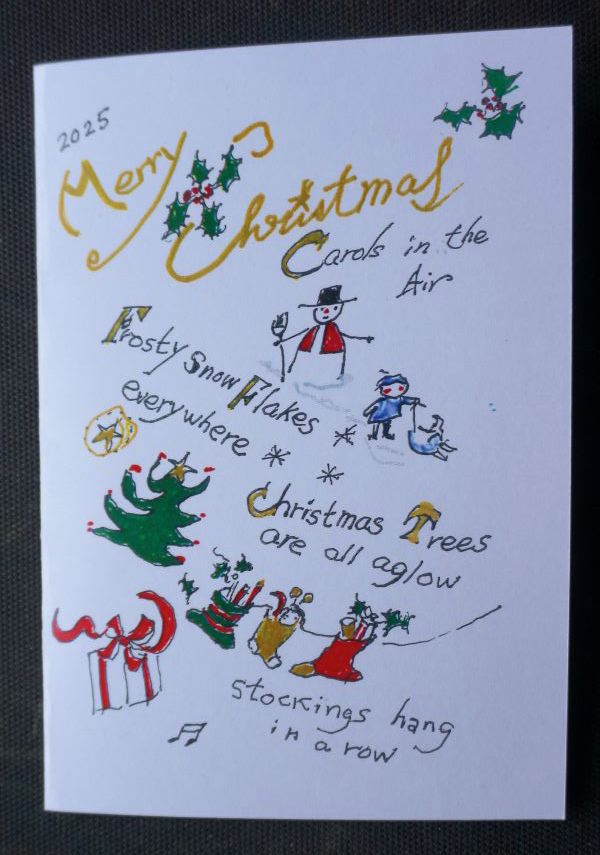 2025
Merry
Christmas
Carols in the
Air
Frosty Snow Flakes
everywhere
Christmas Trees
are all aglow
stockings hang
in a row